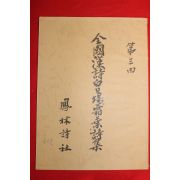 第三回
全國漢詩白日場當選詩集
鳳林詩社